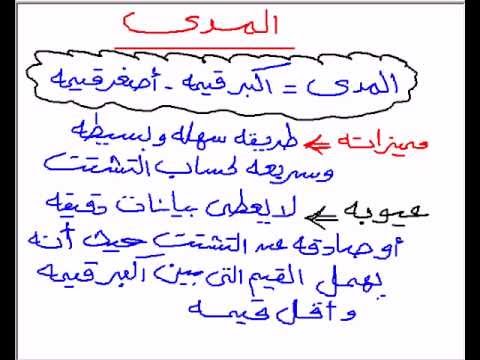 المدى
المدى = أكبر قيمه - أصغر قيمه
مميزاته ⇐ طريقه سهله وبسيطه
وسريعه لحساب التشتت
عيوبه ⇐ لا يعطى بيانات دقيقه
أو صادقه عن التشتت حيث أنه
يهمل القيم التى بين أكبر قيمه
وأقل قيمه